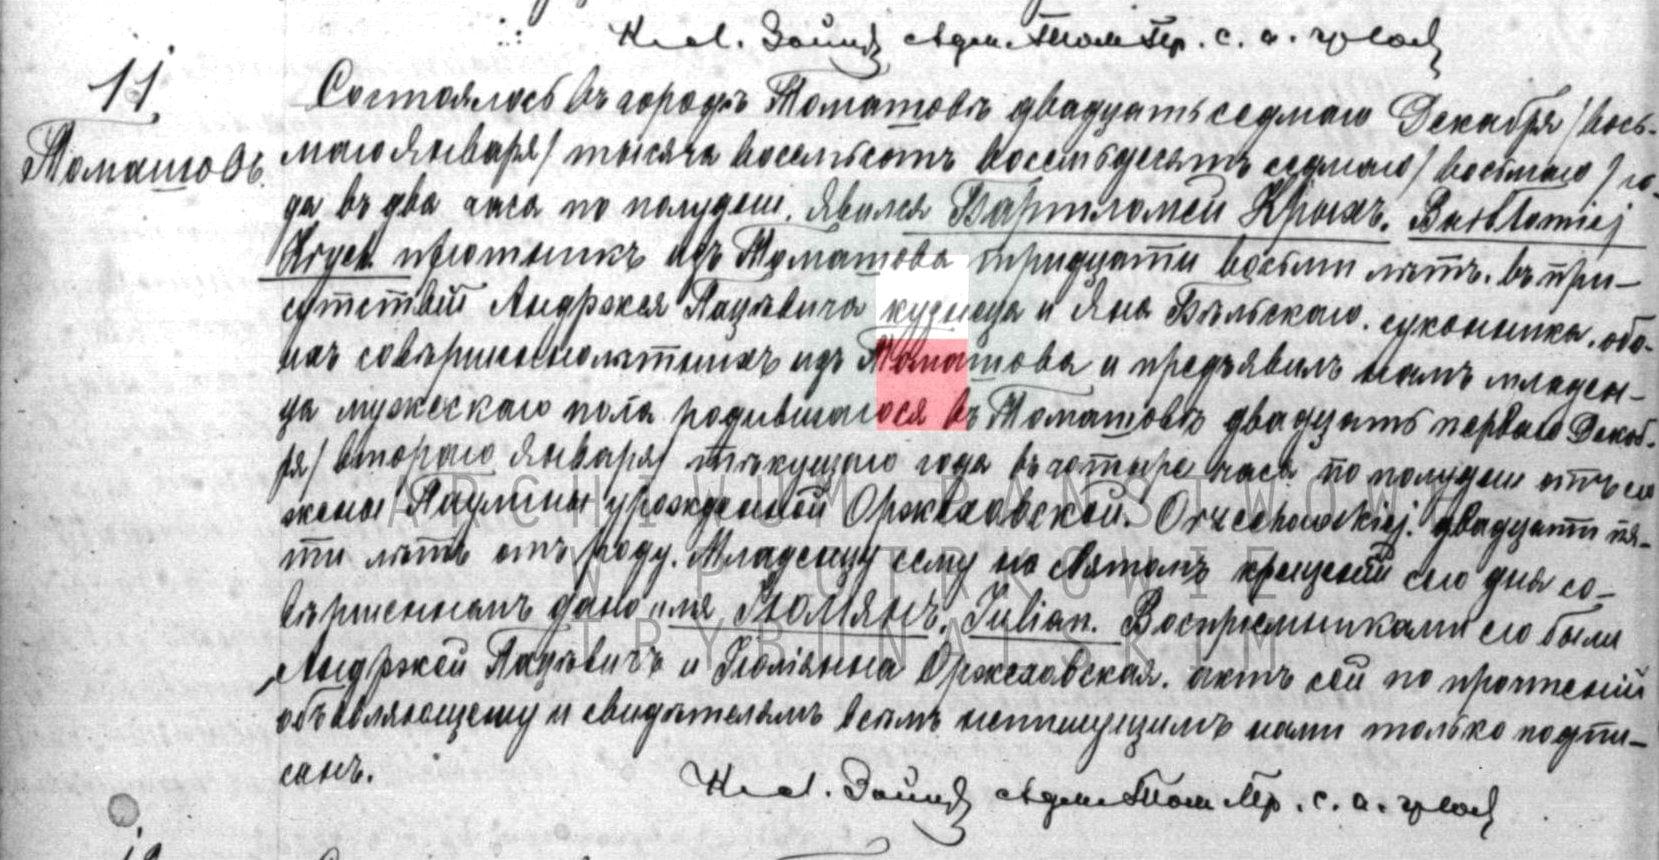 11
Томашовъ.
Состоялось въ городѣ Томашовѣ двадцать седмаго Декабря /вось-
маго Января/ тысяча восемьсотъ восемьдесятъ седмаго / восьмаго / го-
да въ два часа по полудни. Явился Бартломей Крыхъ. Bartłomiej
Krych. плотникъ изъ Томашова тридцати восьми лѣтъ. въ при-
сутствіи Андржея Пацѣвича кузнеца и Яна Бѣльскаго. суконника. обо-
ихъ совершеннолѣтнихъ изъ Томашова и предъявилъ намъ младен-
ца мужескаго пола родившагося въ Томашовѣ двадцать перваго Декаб-
ря/ втораго Января/ текущаго года въ четыре часа по полудни отъ его
жены Паулины урожденной Оржеховской. Orzechowskiej. двадцати пя-
ти лѣтъ отъ роду. Младенцу сему на святомъ крещеніи сего дня со-
вершенномъ дано имя Юліянъ. Julian. Воспріемниками его были
Андржей Пацѣвичъ и Юліянна Оржеховская. актъ сей по прочтеніи
объявляющему и свидѣтелямъ всѣмъ непишущимъ нами только подпи-
санъ.
ARCHIWUM PAŃSTWOWE
W PIOTRKOWIE
TRYBUNALSKIM